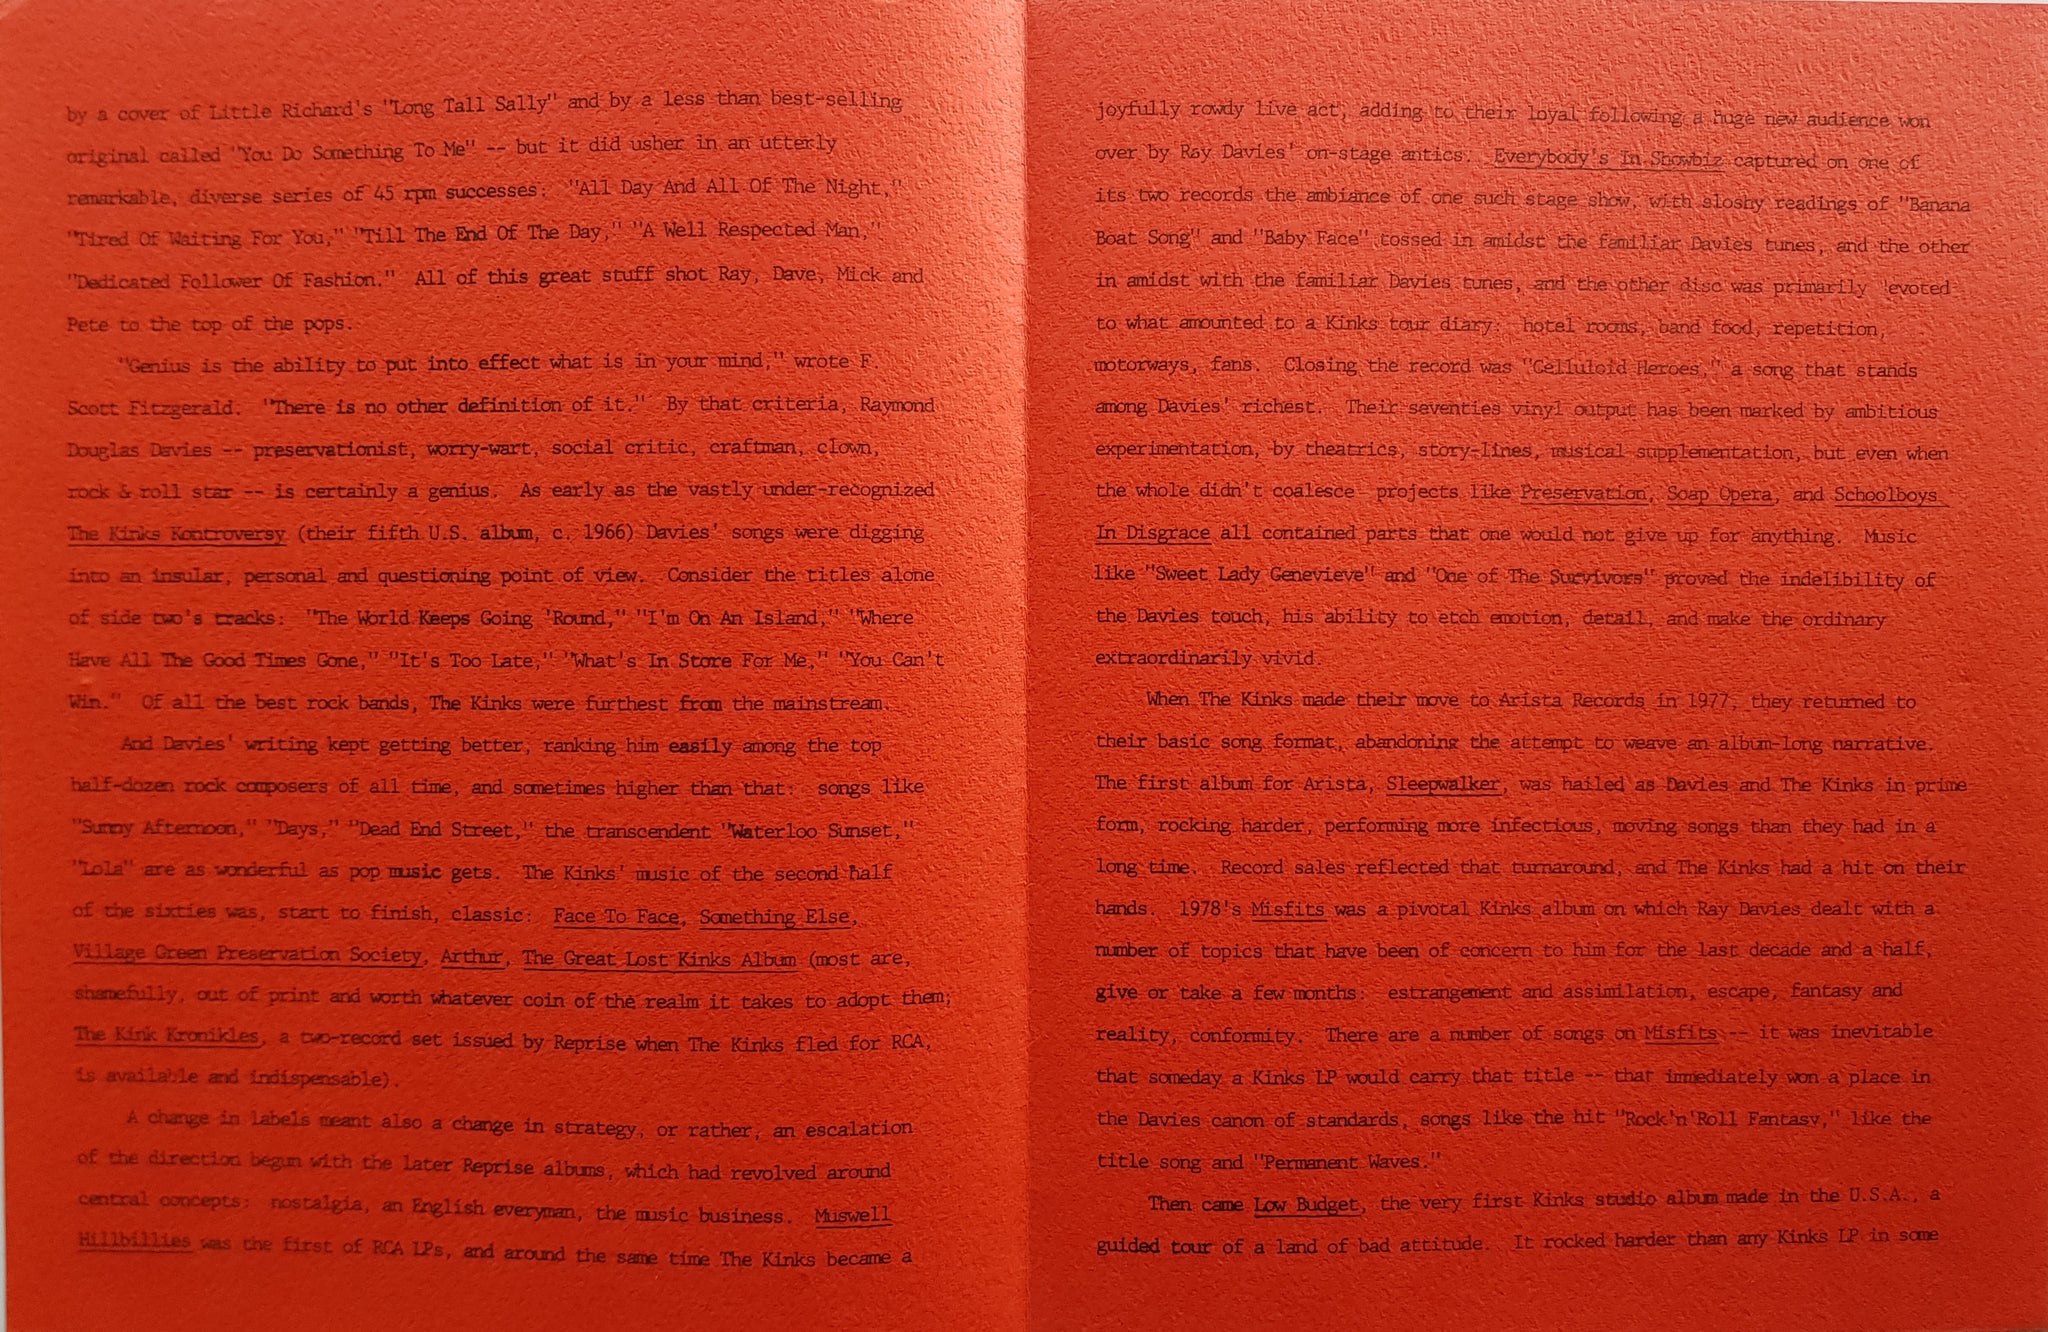 by a cover of Little Richard's "Long Tall Sally" and by a less than best-selling
original called "You Do Something To Me" -- but it did usher in an utterly
remarkable, diverse series of 45 rpm successes: "All Day And All Of The Night,"
"Tired Of Waiting For You," "Till The End Of The Day," "A Well Respected Man,"
"Dedicated Follower Of Fashion." All of this great stuff shot Ray, Dave, Mick and
Pete to the top of the pops.
"Genius is the ability to put into effect what is in your mind," wrote F.
Scott Fitzgerald. "There is no other definition of it." By that criteria, Raymond
Douglas Davies -- preservationist, worry-wart, social critic, craftman, clown,
rock & roll star -- is certainly a genius. As early as the vastly under-recognized
The Kinks Kontroversy (their fifth U.S. album, c. 1966) Davies' songs were digging
into an insular, personal and questioning point of view. Consider the titles alone
of side two's tracks: "The World Keeps Going 'Round," "I'm On An Island," "Where
Have All The Good Times Gone," "It's Too Late," "What's In Store For Me," "You Can't
Win." Of all the best rock bands, The Kinks were furthest from the mainstream.
And Davies' writing kept getting better, ranking him easily among the top
half-dozen rock composers of all time, and sometimes higher than that: songs like
"Sunny Afternoon," "Days," "Dead End Street," the transcendent "Waterloo Sunset,"
"Lola" are as wonderful as pop music gets. The Kinks' music of the second half
of the sixties was, start to finish, classic: Face To Face, Something Else,
Village Green Preservation Society, Arthur, The Great Lost Kinks Album (most are,
shamefully, out of print and worth whatever coin of the realm it takes to adopt them;
The Kink Kronikles, a two-record set issued by Reprise when The Kinks fled for RCA,
is available and indispensable).
A change in labels meant also a change in strategy, or rather, an escalation
of the direction begun with the later Reprise albums, which had revolved around
central concepts: nostalgia, an English everyman, the music business. Muswell
Hillbillies was the first of RCA LPs, and around the same time The Kinks became a
joyfully rowdy live act, adding to their loyal following a huge new audience won
over by Ray Davies' on-stage antics. Everybody's In Showbiz captured on one of
its two records the ambiance of one such stage show, with sloshy readings of "Banana
Boat Song" and "Baby Face" tossed in amidst the familiar Davies tunes, and the other
in amidst with the familiar Davies tunes, and the other disc was primarily 'evoted
to what amounted to a Kinks tour diary: hotel rooms, band food, repetition,
motorways, fans. Closing the record was "Celluloid Heroes," a song that stands
among Davies' richest. Their seventies vinyl output has been marked by ambitious
experimentation, by theatrics, story-lines, musical supplementation, but even when
the whole didn't coalesce projects like Preservation, Soap Opera, and Schoolboys
In Disgrace all contained parts that one would not give up for anything. Music
like "Sweet Lady Genevieve" and "One of The Survivors" proved the indelibility of
the Davies touch, his ability to etch emotion, detail, and make the ordinary
extraordinarily vivid.
When The Kinks made their move to Arista Records in 1977, they returned to
their basic song format, abandoning the attempt to weave an album-long narrative.
The first album for Arista, Sleepwalker, was hailed as Davies and The Kinks in prime
form, rocking harder, performing more infectious, moving songs than they had in a
long time. Record sales reflected that turnaround, and The Kinks had a hit on their
hands. 1978's Misfits was a pivotal Kinks album on which Ray Davies dealt with a
number of topics that have been of concern to him for the last decade and a half,
give or take a few months: estrangement and assimilation, escape, fantasy and
reality, conformity. There are a number of songs on Misfits -- it was inevitable
that someday a Kinks LP would carry that title -- that immediately won a place in
the Davies canon of standards, songs like the hit "Rock'n'Roll Fantasy," like the
title song and "Permanent Waves."
Then came Low Budget, the very first Kinks studio album made in the U.S.A., a
guided tour of a land of bad attitude. It rocked harder than any Kinks LP in some